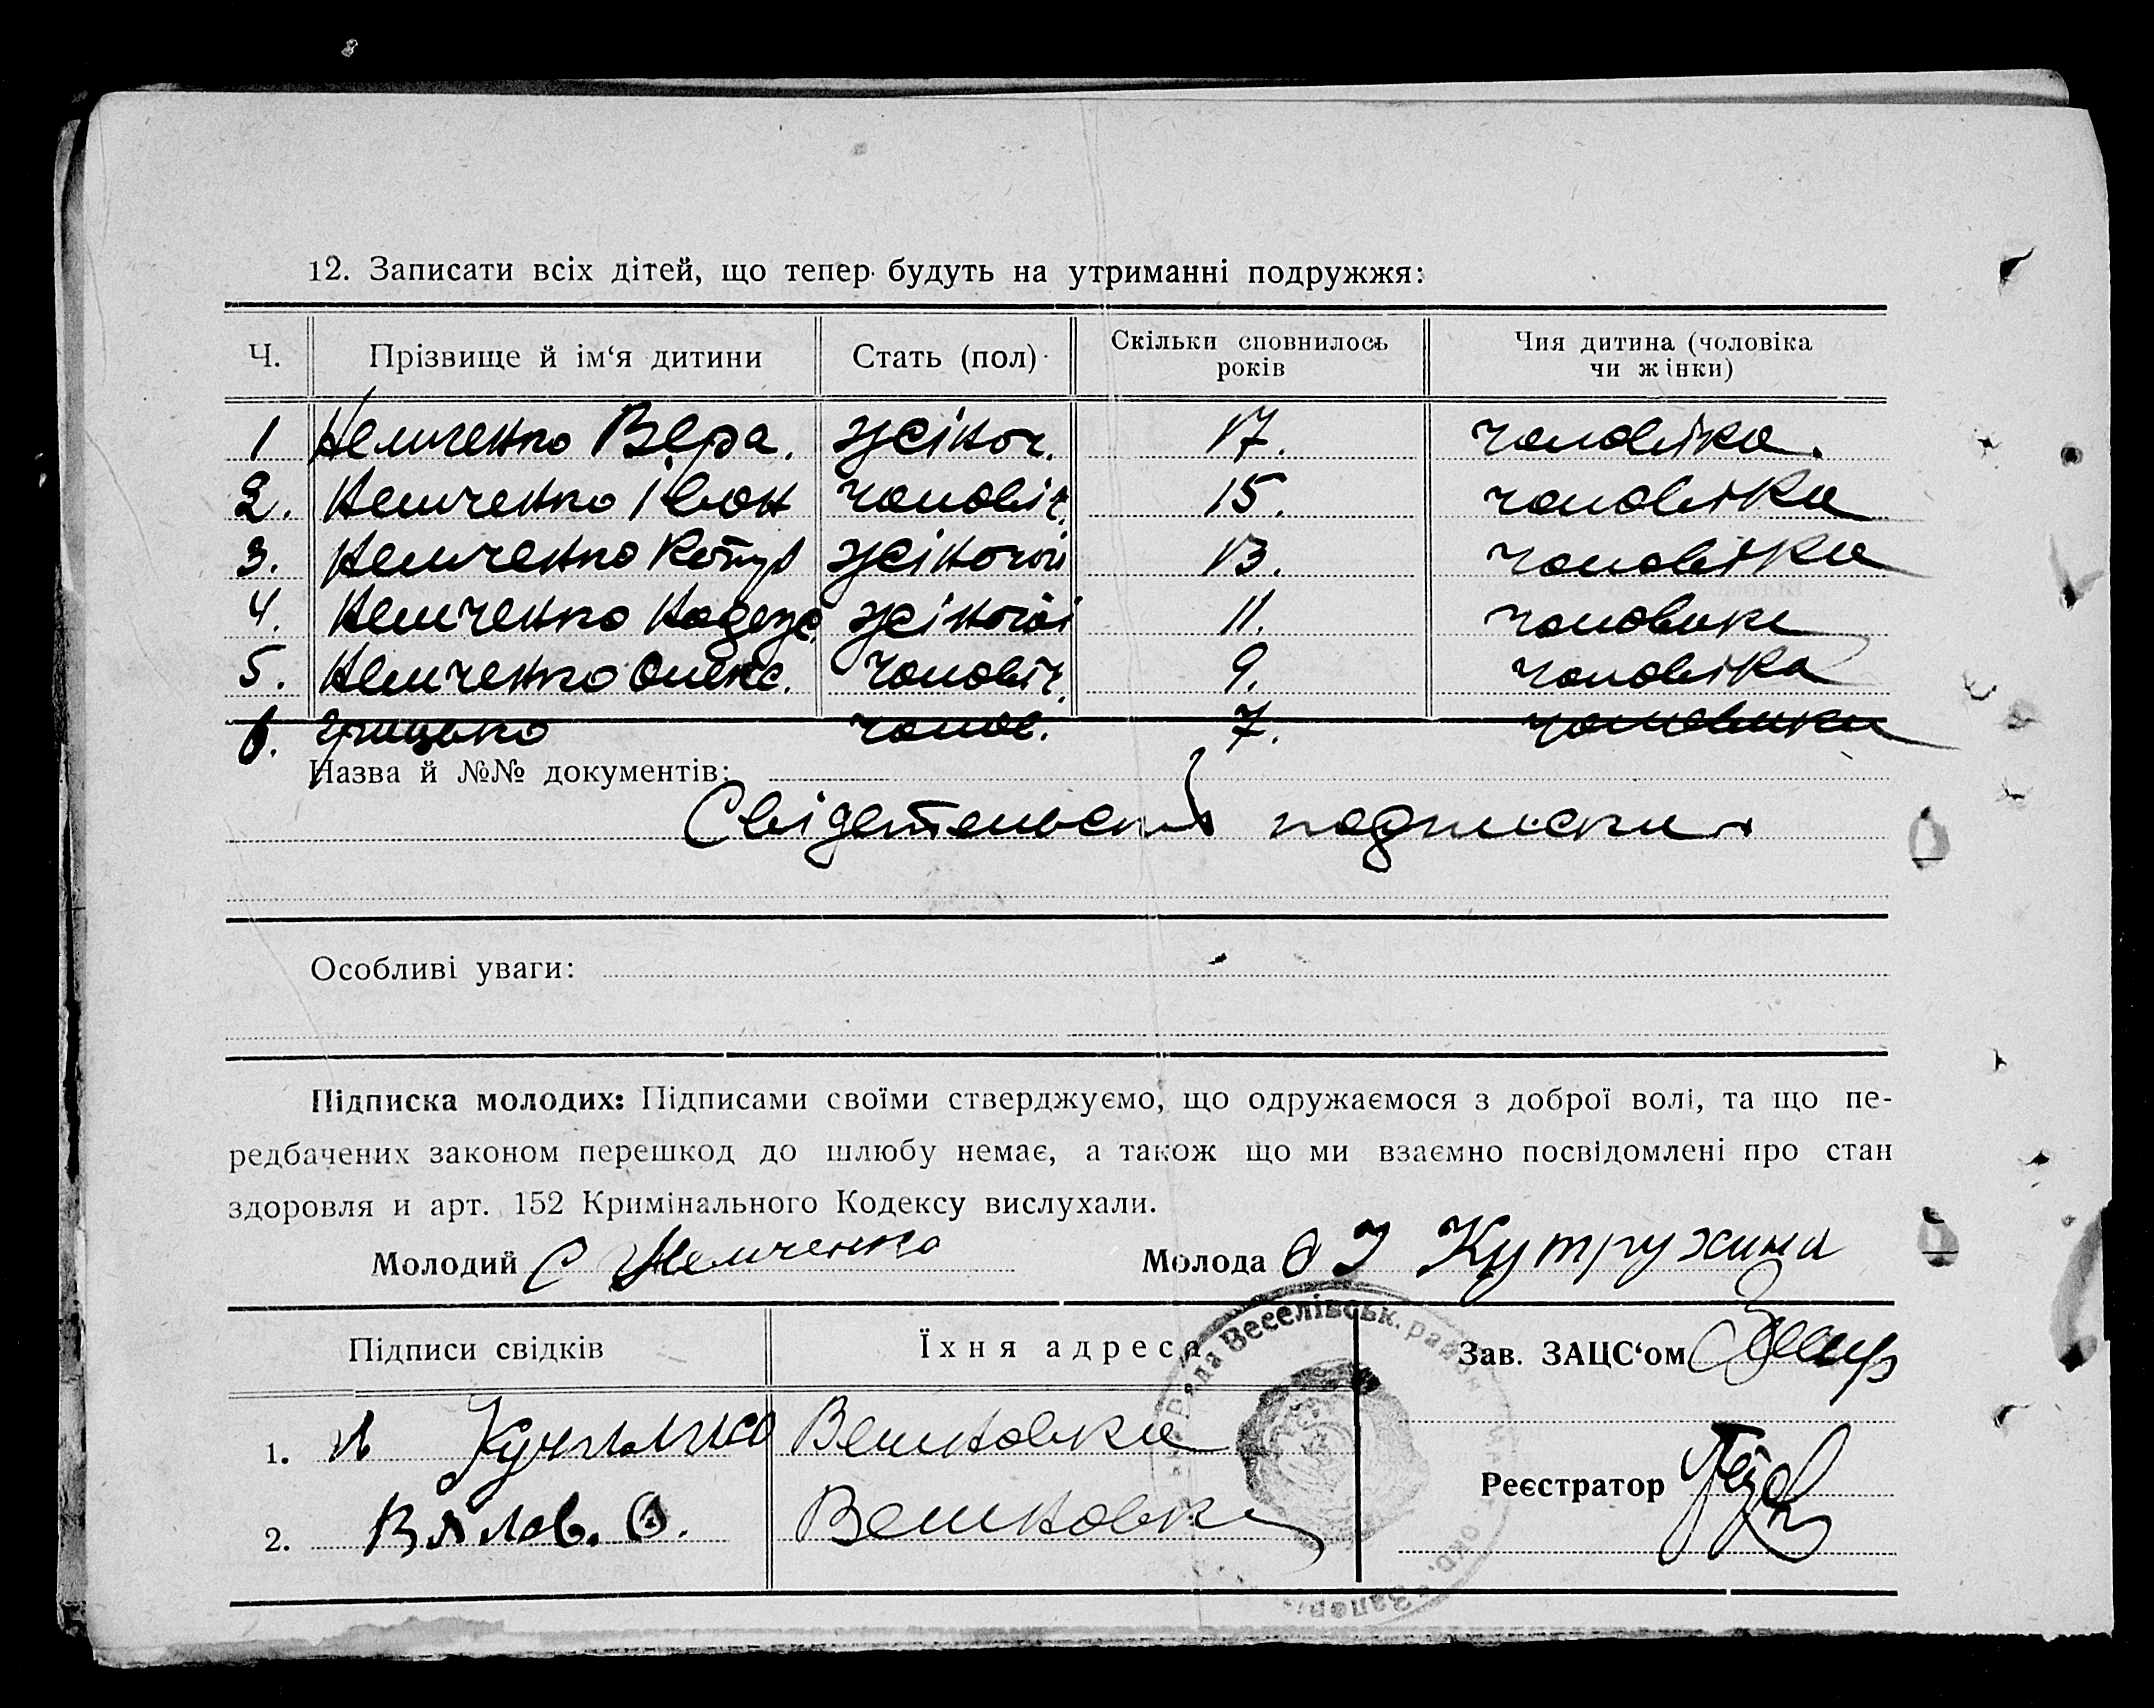 12. Записати всіх дітей, що тепер будуть на утриманні подружжя:
Ч. Прізвище й ім‘я дитини Стать (пол) Скільки сповнилось років Чия дитина (чоловіка чи жінки)
1 Немченко Вера. жіноч. 17. чоловіка.
2. Немченко Іван чоловіч. 15. чоловіка
3. Немченко жіночій 13. чоловіка
4. Немченко Надежд. жіночій 11. чоловика
5. Немченко Олекс. чоловіч. 9. чоловіка
6. Грицько чолов. 7. чоловика
Назва й №№ документів:
Свідетельські подписки
Особливі уваги:
Підписка молодих: Підписами своїми стверджуємо, що одружаємося з доброї волі, та що пе-
редбачених законом перешкод до шлюбу немає, а також що ми взаємно посвідомлені про стан
здоровля и арт. 152 Кримінального Кодексу вислухали.
Молодий С Немченко Молода Кутружина
Підписи свідків Їхня адреса Зав. ЗАЦС‘ом
1.
Реєстратор
2. Вялов. О.
Рада Веселівськ. район окр. Запоріз